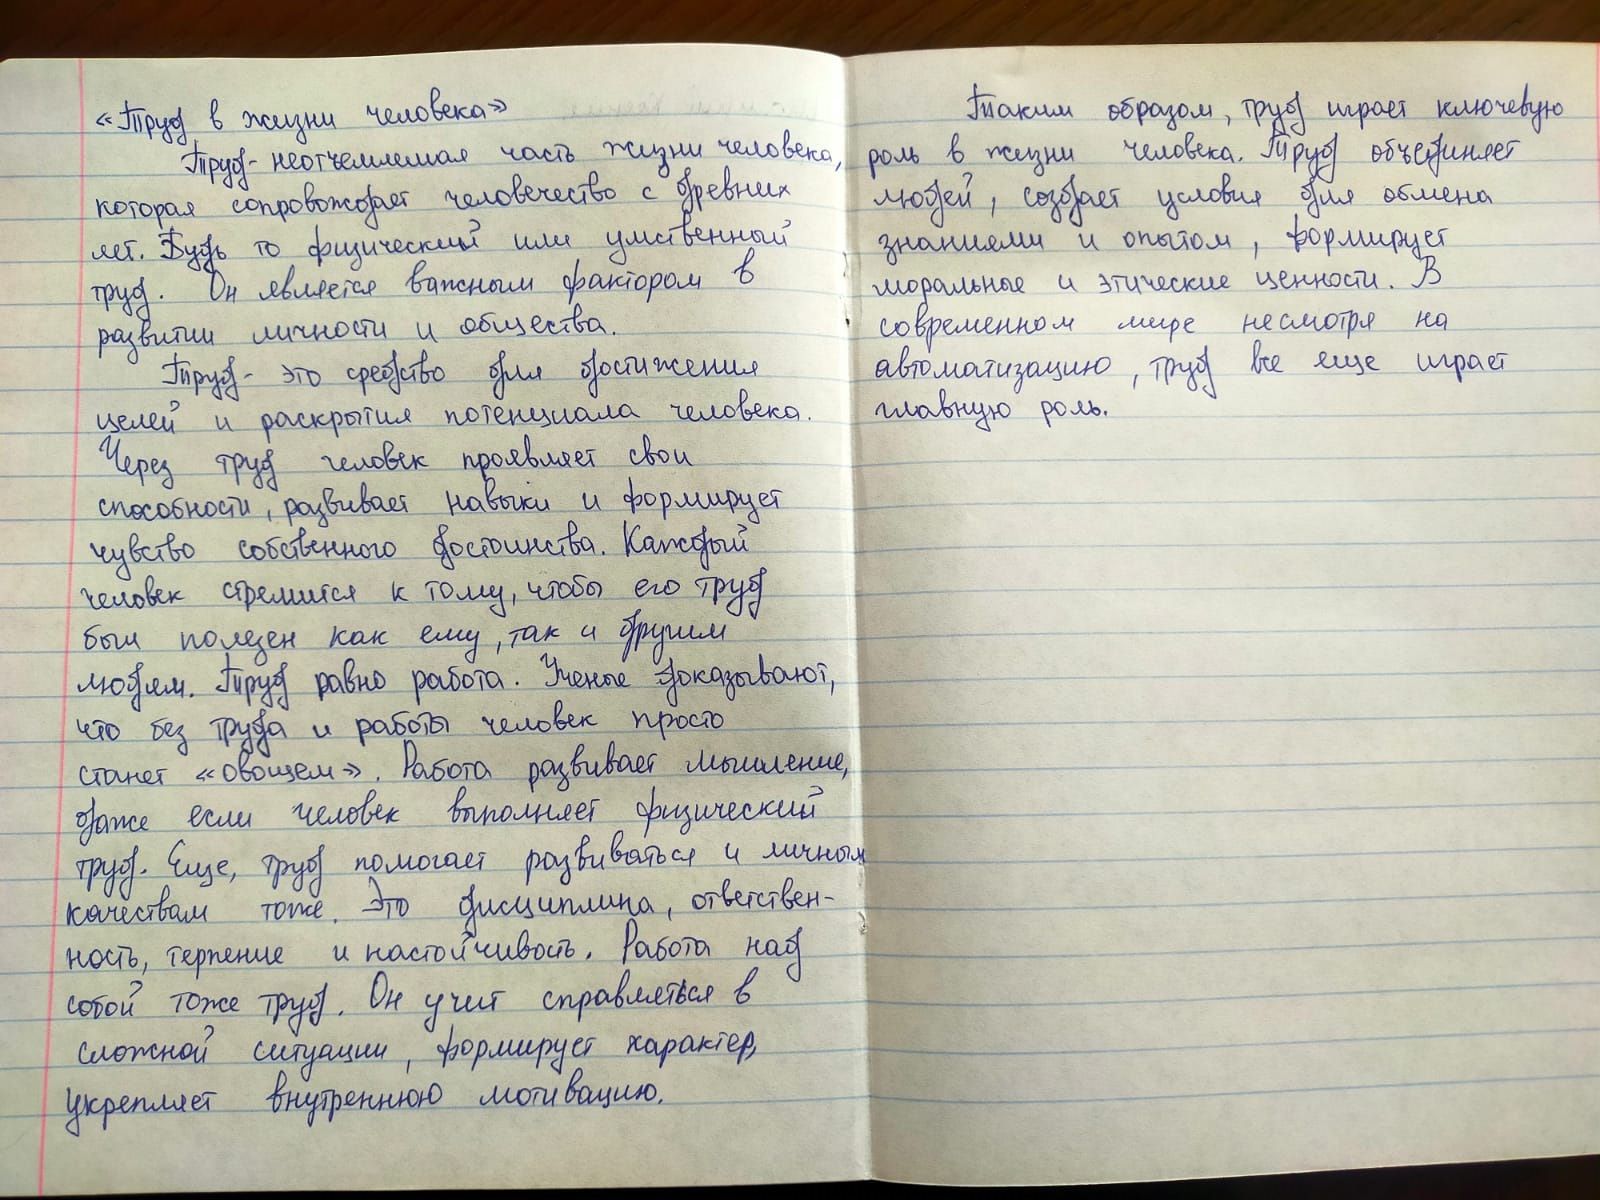 «Труд в жизни человека»
Труд- неотъемлемая часть жизни человека,
которая сопровождает человечество с древних
лет. Будь то физический или умственный
труд. Он является важным фактором в
развитии личности и общества.
Труд- это средство для достижения
целей и раскрытия потенциала человека.
Через труд человек проявляет свои
способности, развивает навыки и формирует
чувство собственного достоинства. Каждый
человек стремится к тому, чтобы его труд
был полезен как ему, так и другим
людям. Труд равно работа. Ученые доказывают,
что без труда и работы человек просто
станет «овощем». Работа развивает мышление,
даже если человек выполняет физический
труд. Еще, труд помогает развиваться и личным
качествам тоже. Это дисциплина, ответствен-
ность, терпение и настойчивость. Работа над
собой тоже труд. Он учит справляться в
сложной ситуации, формирует характер,
укрепляет внутреннюю мотивацию.
Таким образом, труд играет ключевую
роль в жизни человека. Труд объединяет
людей, создает условия для обмена
знаниями и опытом, формирует
моральные и этические ценности. В
современном мире несмотря на
автоматизацию, труд все еще играет
главную роль.